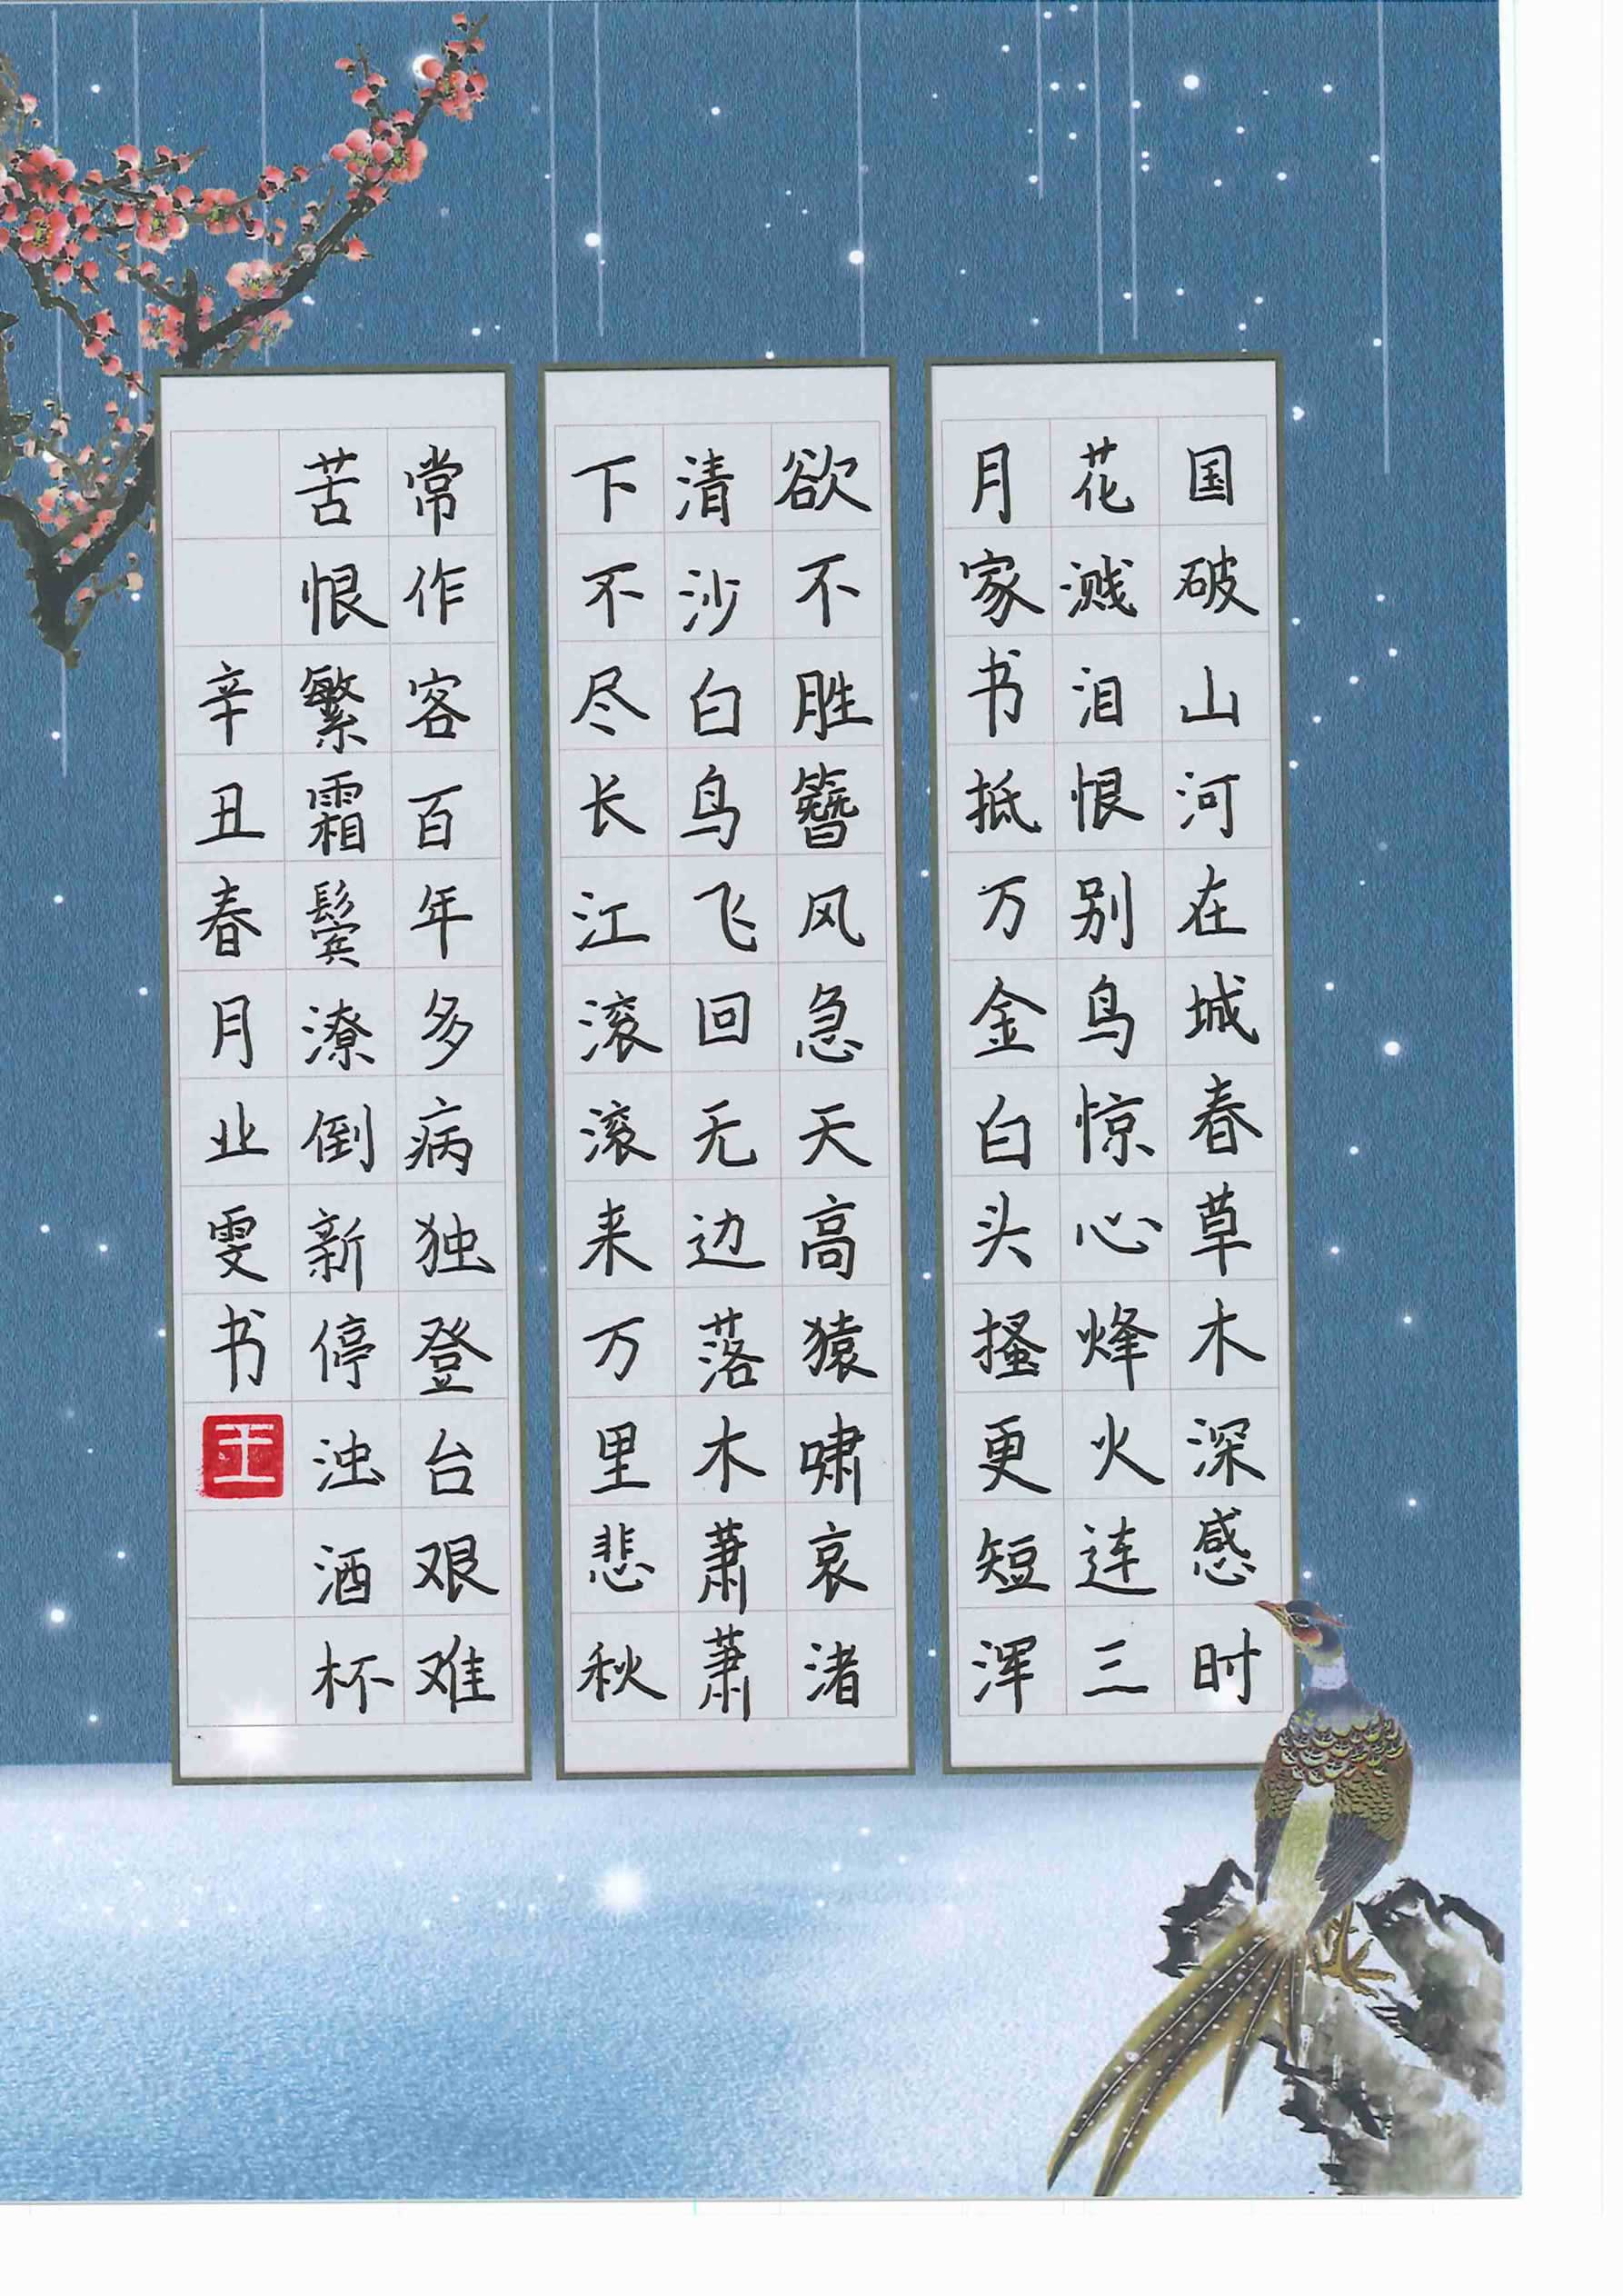 国破山河在城春草木深感时
花溅泪恨别鸟惊心烽火连三
月家书抵万金白头搔更短浑
欲不胜簪风急天高猿啸哀渚
清沙白鸟飞回无边落木萧萧
下不尽长江滚滚来万里悲秋
常作客百年多病独登台艰难
苦恨繁霜鬓潦倒新停浊酒杯
辛丑春月业雯书
王